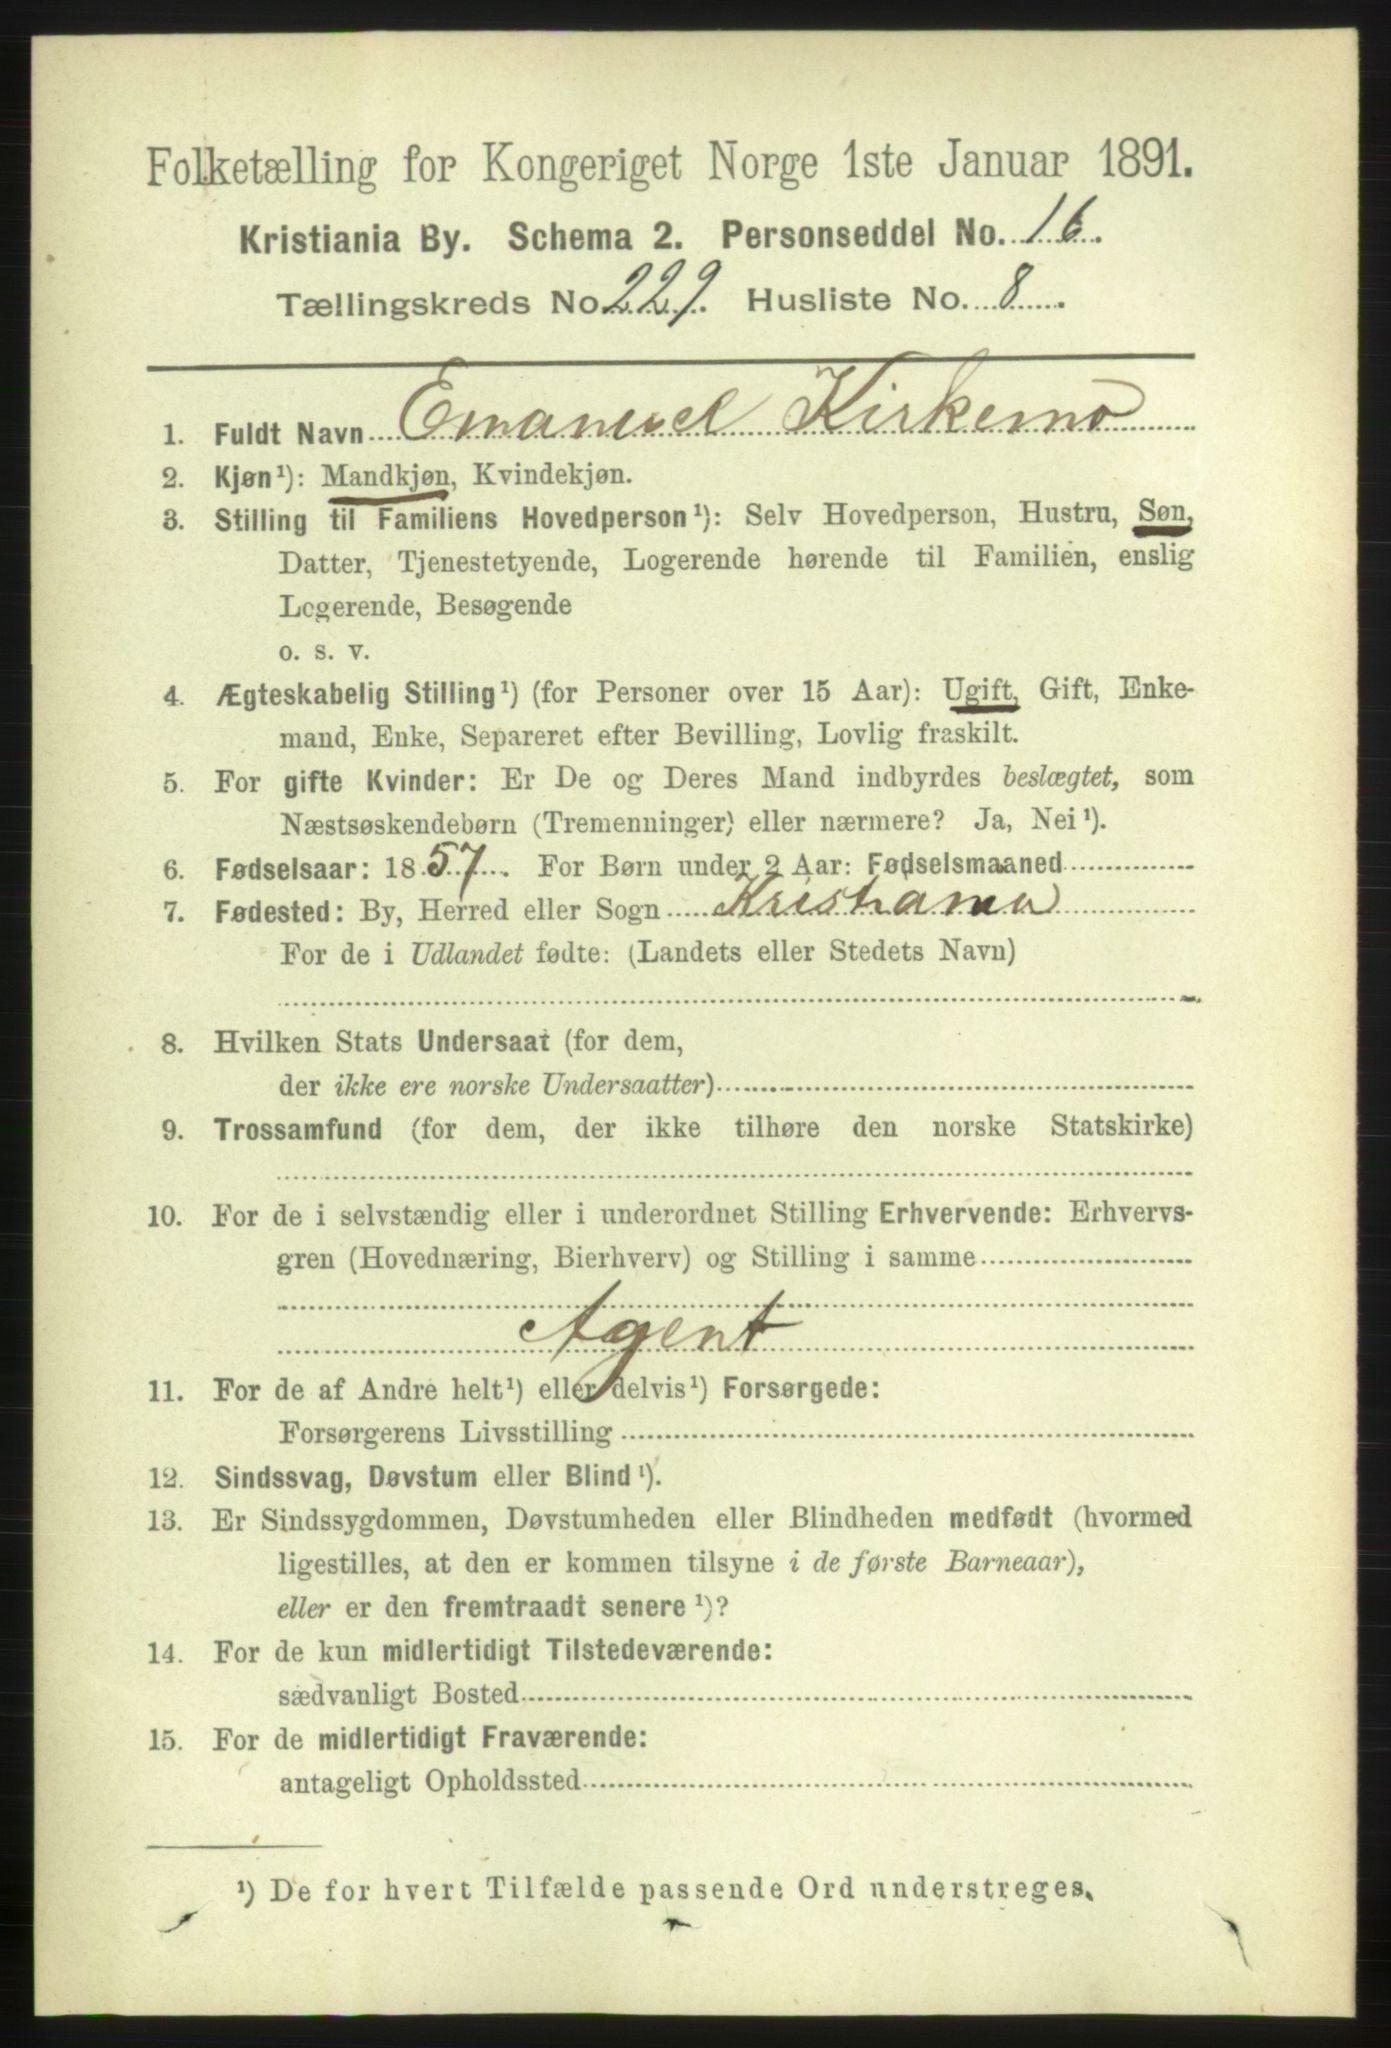 Folketælling for Kongeriget Norge 1ste Januar 1891.
Kristiania By. Schema 2. Personseddel No. 16.
Tællingskreds No 229. Husliste No. 8.
1. Fuldt Navn Emanuel Kirkemo
2. Kjøn¹): Mandkjøn, Kvindekjøn.
3. Stilling til Familiens Hovedperson¹): Selv Hovedperson, Hustru, Søn,
Datter, Tjenestetyende, Logerende hørende til Familien, enslig
Logerende, Besøgende
o. s. v.
4. Ægteskabelig Stilling¹) (for Personer over 15 Aar): Ugift, Gift, Enke-
mand, Enke, Separeret efter Bevilling, Lovlig fraskilt.
5. For gifte Kvinder: Er De og Deres Mand indbyrdes beslægtet, som
Næstsøskendebørn (Tremenninger) eller nærmere? Ja, Nei¹).
6. Fødselsaar: 1857. For Børn under 2 Aar: Fødselsmaaned
7. Fødested: By, Herred eller Sogn Kristiania
For de i Udlandet fødte: (Landets eller Stedets Navn)
8. Hvilken Stats Undersaat (for dem,
der ikke ere norske Undersaatter)
9. Trossamfund (for dem, der ikke tilhøre den norske Statskirke)
10. For de i selvstændig eller i underordnet Stilling Erhvervende: Erhvervs-
gren (Hovednæring, Bierhverv) og Stilling i samme
Agent
11. For de af Andre helt¹) eller delvis¹) Forsørgede:
Forsørgerens Livsstilling
12. Sindssvag, Døvstum eller Blind¹).
13. Er Sindssygdommen, Døvstumheden eller Blindheden medfødt (hvormed
ligestilles, at den er kommen tilsyne i de første Barneaar),
eller er den fremtraadt senere¹)?
14. For de kun midlertidigt Tilstedeværende:
sædvanligt Bosted
15. For de midlertidigt Fraværende:
antageligt Opholdssted
¹) De for hvert Tilfælde passende Ord understreges.